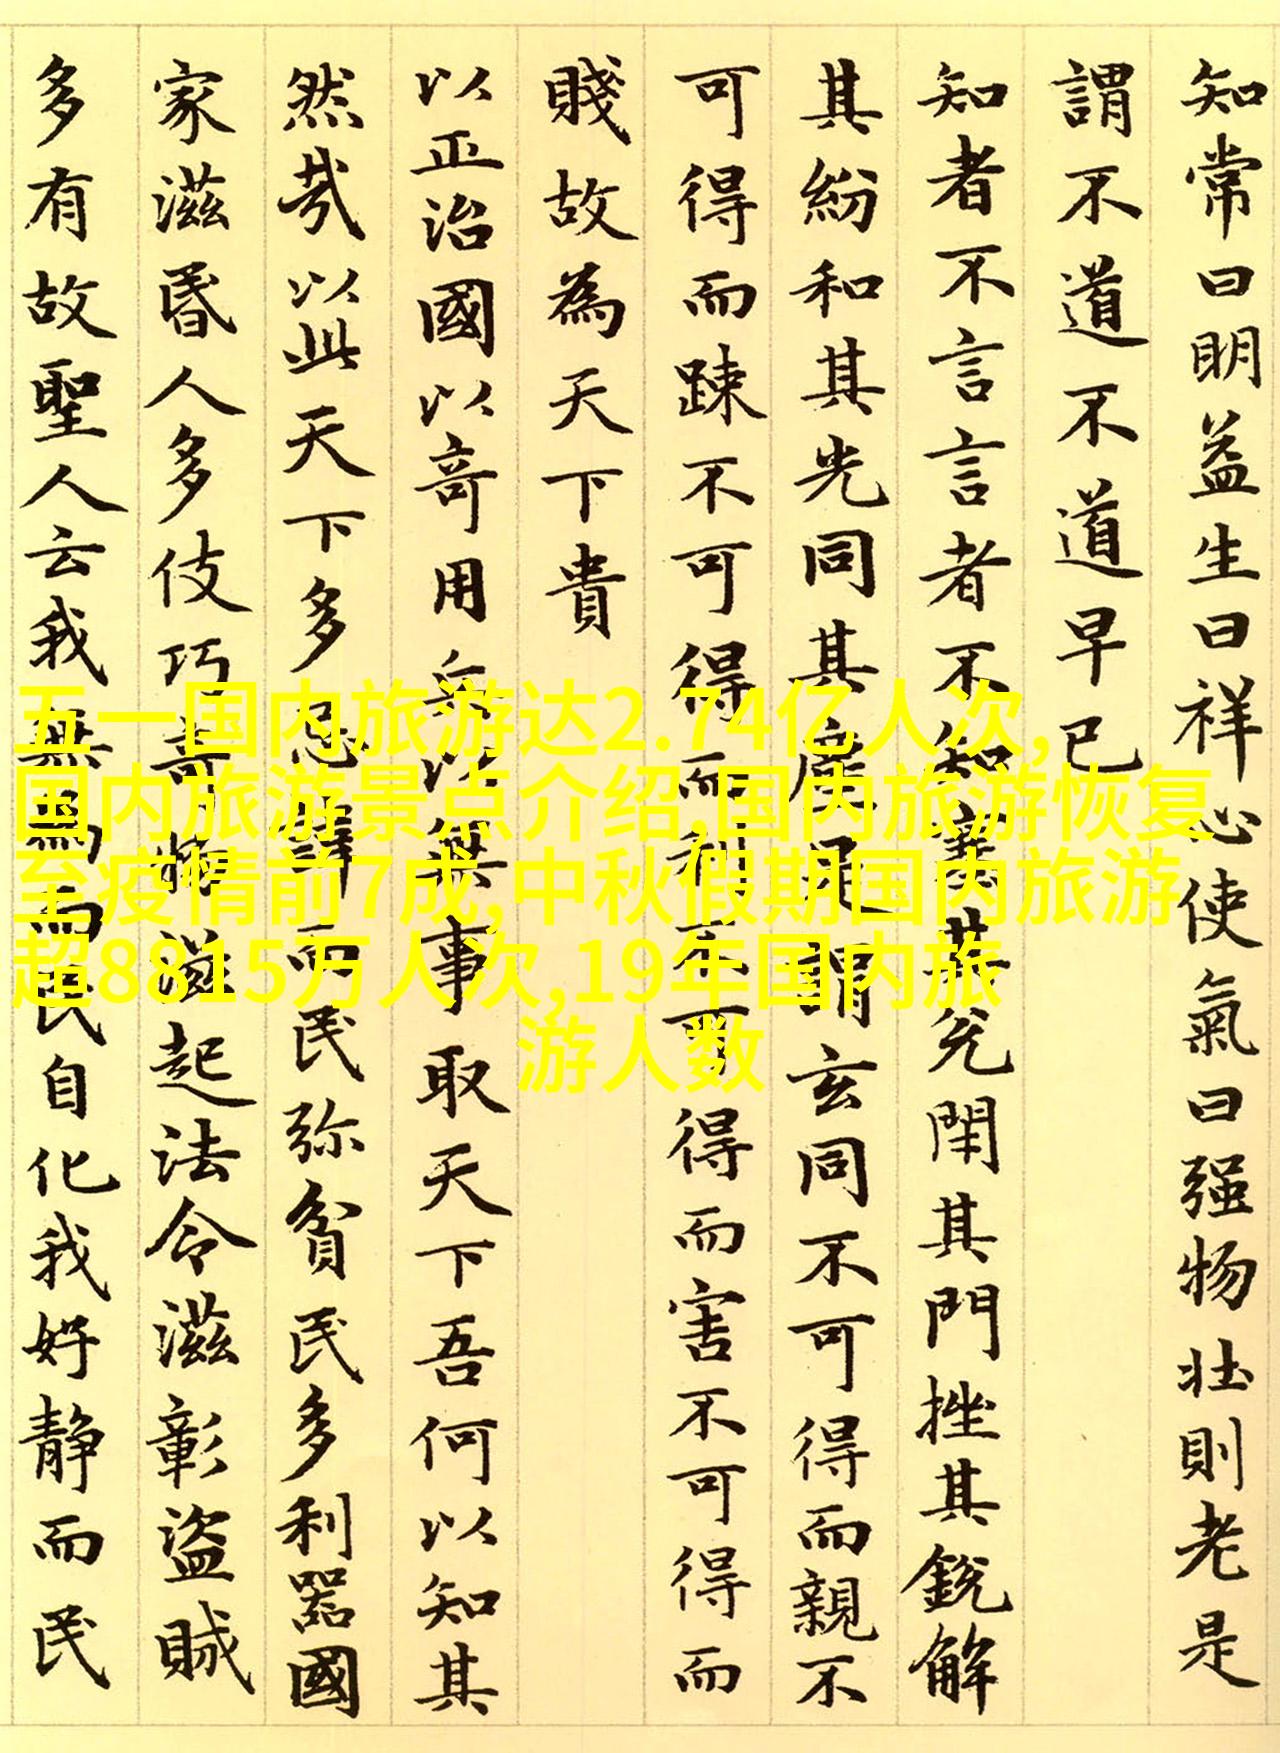 知常曰明益生曰祥心使氣曰强物壯則老是
謂不道不道早已
知者不言言者不知塞其兊閇其門挫其銳解
其紛和其光同其塵是謂玄同不可得而親不
可得而踈不可得而利不可得而害不可得而
賤故為天下貴
以正治國以竒用兵以無事取天下吾何以知其
然㢤以此天下多忌諱而民弥貧民多利器國
家滋昬人多伎巧竒物滋起法令滋彰盜賊
多有故聖人云我無為而民自化我好静而民
五一国内旅游达2.74亿人次,
国内旅游景点介绍,国内旅游恢复
至疫情前7成,中秋假期国内旅游
超8815万人次,19年国内旅
游人数